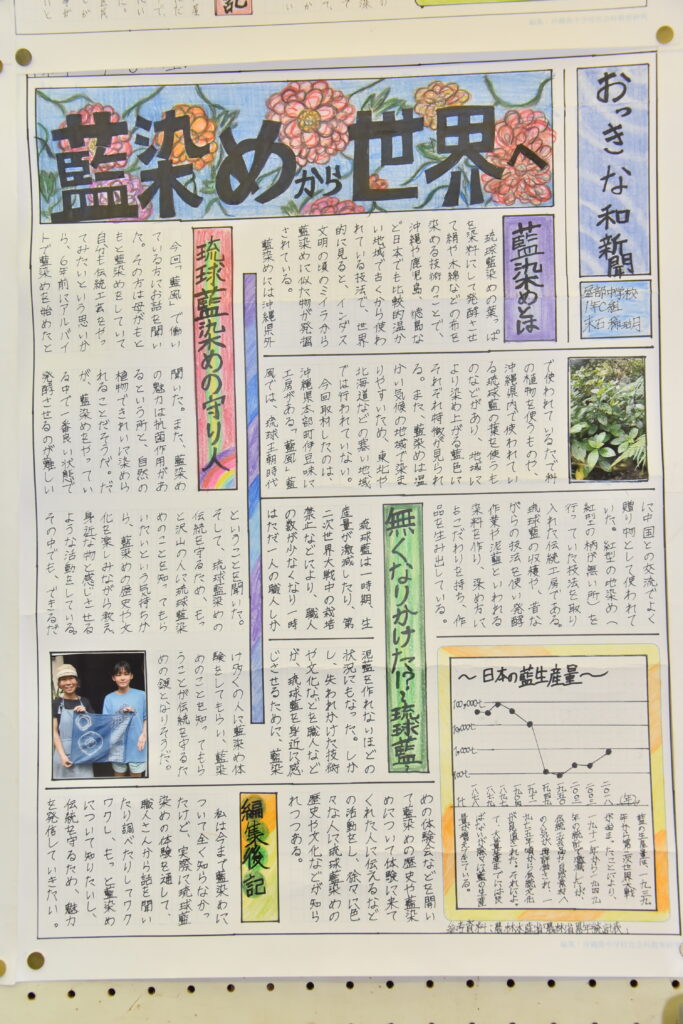 おっきな和新聞
屋部中学校
1年C組
藍染めから世界へ
藍染めとは
琉球藍染めの葉っぱ
を染料にして発酵させ
て絹や木綿などの布を
染める技術のことで、
沖縄や鹿児島、徳島な
ど日本でも比較的温か
い地域で古くから使わ
れている技法で、世界
的に見ると、インダス
文明の頃のミイラから
藍染めに似た物が発掘
されている。
藍染めには沖縄県外
で使われているたで科
の植物を使うものや、
沖縄県内で使われてい
る琉球藍の葉を使うも
のなどがあり、地域に
より染め上がる藍色に
それぞれ特徴が見られ
る。また、藍染めは温
かい気候の地域で染ま
りやすいため、東北や
北海道などの寒い地域
では行われていない。
今回取材したのは、
沖縄県本部町伊豆味に
工房がある、「藍風」。藍
風では、琉球王朝時代
に中国との交流でよく
贈り物として使われて
いた。紅型の地染め(
紅型の柄が無い所)を
行っていた技法を取り
入れた伝統工房である。
琉球藍の収穫や、昔な
がらの技法を使い発酵
作業や泥藍といわれる
染料を作り、染め方に
もこだわりを持ち、作
品を生み出している。
無くなりかけた!?~琉球藍~
琉球藍は一時期、生
産量が激減したり、第
二次世界大戦中の栽培
禁止などにより、職人
の数が少なくなり一時
はただ一人の職人しか
泥藍を作れないほどの
状況にもなった。しか
し、失われかけた技術
や文化などを職人など
が、琉球藍を身近に感
じさせるために、藍染
めの体験会などを開い
て藍染めの歴史や藍染
めについて体験に来て
くれた人に伝えるなど
の活動をし、徐々に色
々な人に琉球藍染めの
歴史や文化などが知ら
れつつある。
琉球藍染めの守り人
今回「藍風」で働い
ている方にお話を聞い
た。その方は母がもと
もと藍染めをしていて、
自分も伝統工芸をやっ
てみたいという思いか
ら、6年前にアルバイ
トで藍染めを始めたと
聞いた。また、藍染め
の魅力は抗菌作用があ
るという所と、自然の
植物できれいに染めら
れることだそうだ。だ
が、藍染めをやってい
る中で一番良い状態で
発酵させるのが難しい
ということを聞いた。
そして、琉球藍染めの
伝統を守るため、もっ
と沢山の人に琉球藍染
めのことを知ってもら
いたいという気持ちか
ら、藍染めの歴史や文
化を楽しみながら教え
身近な物と感じさせる
ような活動をしている。
その中でも、できるだ
け多くの人に藍染め体
験をしてもらい、藍染
めのことを知ってもら
うことが伝統を守るた
めの鍵となりそうだ。
~日本の藍生産量~
(年)
編集後記
私は今まで藍染めに
ついて全く知らなかっ
たけど、実際に琉球藍
染めの体験を通して、
職人さんから話を聞い
たり調べたりしてワク
ワクし、もっと藍染め
について知りたいし、
伝統を守るため、魅力
を発信していきたい。